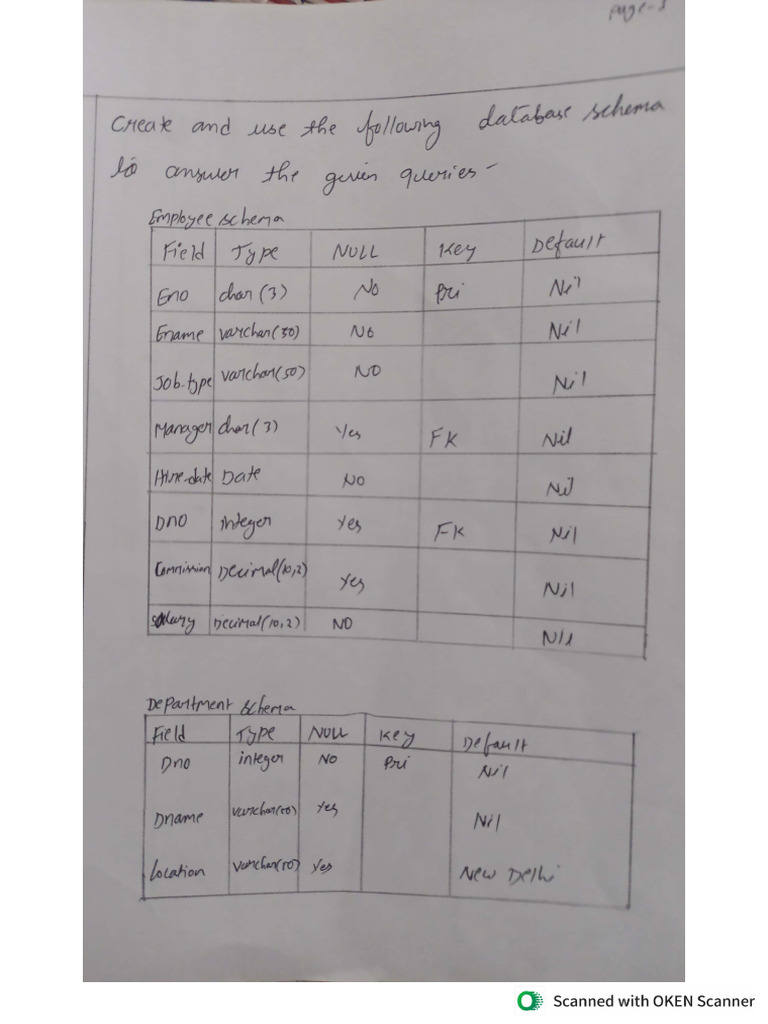 page-1
Create and use the following database schema
to answer the given queries -
Employee schema
Field Type NULL Key Default
Eno char(3) No Pri Nil
Ename varchar(50) No Nil
Job-type varchar(50) NO Nil
Manager char(3) Yes FK Nil
Hire-date Date NO Nil
DNO integer Yes FK Nil
Commission Decimal(10,2) Yes Nil
salary Decimal(10,2) NO Nil
Department schema
Field Type NULL Key Default
Dno integer No Pri Nil
Dname varchar(50) Yes Nil
Location varchar(50) Yes New Delhi
Scanned with OKEN Scanner